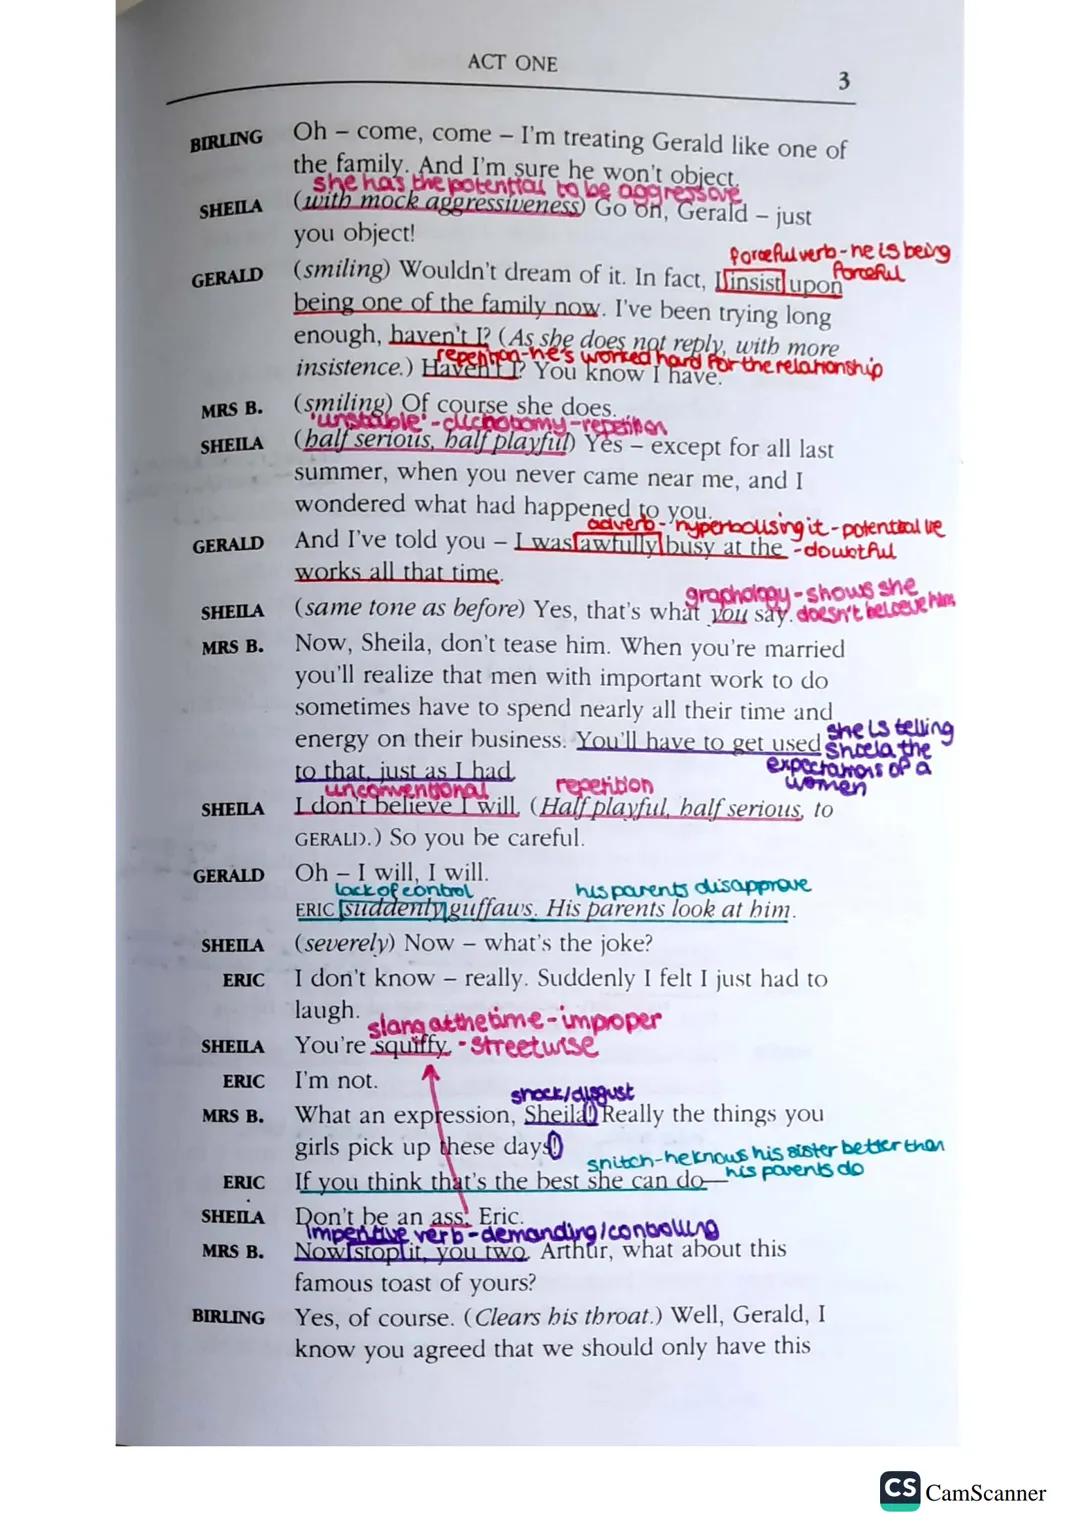 ACT ONE
3
BIRLING Oh – come, come – I'm treating Gerald like one of
the family. And I'm sure he won't object.
she has the potential to be aggressive
SHEILA (with mock aggressiveness) Go on, Gerald – just
you object!
forceful verb - he is being
forceful
GERALD (smiling) Wouldn't dream of it. In fact, I insist upon
being one of the family now. I've been trying long
enough, haven't I? (As she does not reply, with more
repetition - he's worked hard for the relationship
insistence.) Haven't I? You know I have.
MRS B. (smiling) Of course she does.
'unstable' - dichotomy - repetition
SHEILA (half serious, half playful) Yes – except for all last
summer, when you never came near me, and I
wondered what had happened to you.
adverb - hyperbolising it - potential lie
GERALD And I've told you – I was awfully busy at the - doubtful
works all that time.
graphology - shows she
SHEILA (same tone as before) Yes, that's what you say. doesn't beleeve him
MRS B. Now, Sheila, don't tease him. When you're married
you'll realize that men with important work to do
sometimes have to spend nearly all their time and
energy on their business. You'll have to get used
to that, just as I had.
she is telling
Sheela the
expectations of a
women
unconventional repetition
SHEILA I don't believe I will. (Half playful, half serious, to
GERALD.) So you be careful.
GERALD Oh – I will, I will.
lack of control his parents disapprove
ERIC suddenly guffaws. His parents look at him.
SHEILA (severely) Now – what's the joke?
ERIC I don't know – really. Suddenly I felt I just had to
laugh.
slang at the time - improper
SHEILA You're squiffy. - streetwise
ERIC I'm not.
shock/disgust
MRS B. What an expression, Sheila! Really the things you
girls pick up these days!
snitch - he knows his sister better than
his parents do
ERIC If you think that's the best she can do—
SHEILA Don't be an ass, Eric.
imperitive verb - demanding/controlling
MRS B. Now stop it, you two. Arthur, what about this
famous toast of yours?
BIRLING Yes, of course. (Clears his throat.) Well, Gerald, I
know you agreed that we should only have this
CS CamScanner